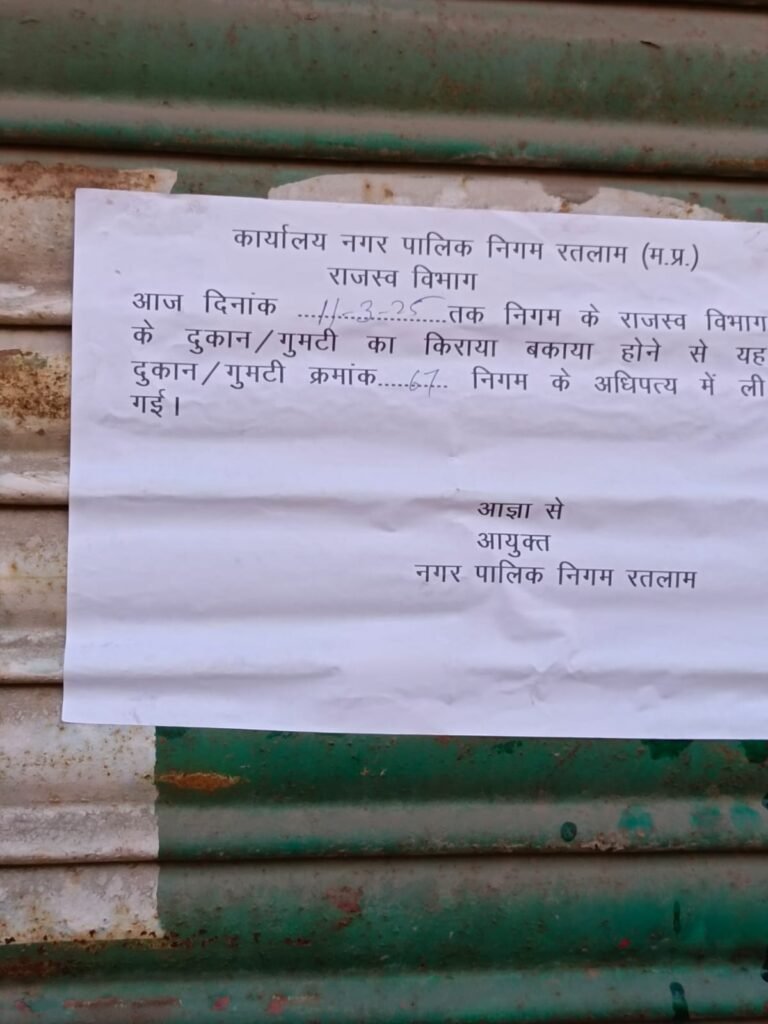 कार्यालय नगर पालिक निगम रतलाम (म.प्र.)
राजस्व विभाग
आज दिनांक ...11-3-25...तक निगम के राजस्व विभाग
के दुकान/गुमटी का किराया बकाया होने से यह
दुकान/गुमटी क्रमांक.....67.. निगम के अधिपत्य में ली
गई।
आज्ञा से
आयुक्त
नगर पालिक निगम रतलाम